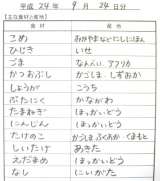 平成 24年 9月 24日分
【主な食材と産地】
食材 産地
こめ
ひじき いせ
ごま なんべい、アフリカ
かつおぶし かごしま、しずおか
しょうが こうち
ぶたにく かながわ
たまねぎ ほっかいどう
にんじん ほっかいどう
たけのこ かごしま ふくおか くまもと
しいたけ あきた
えだまめ ほっかいどう
なし にいがた